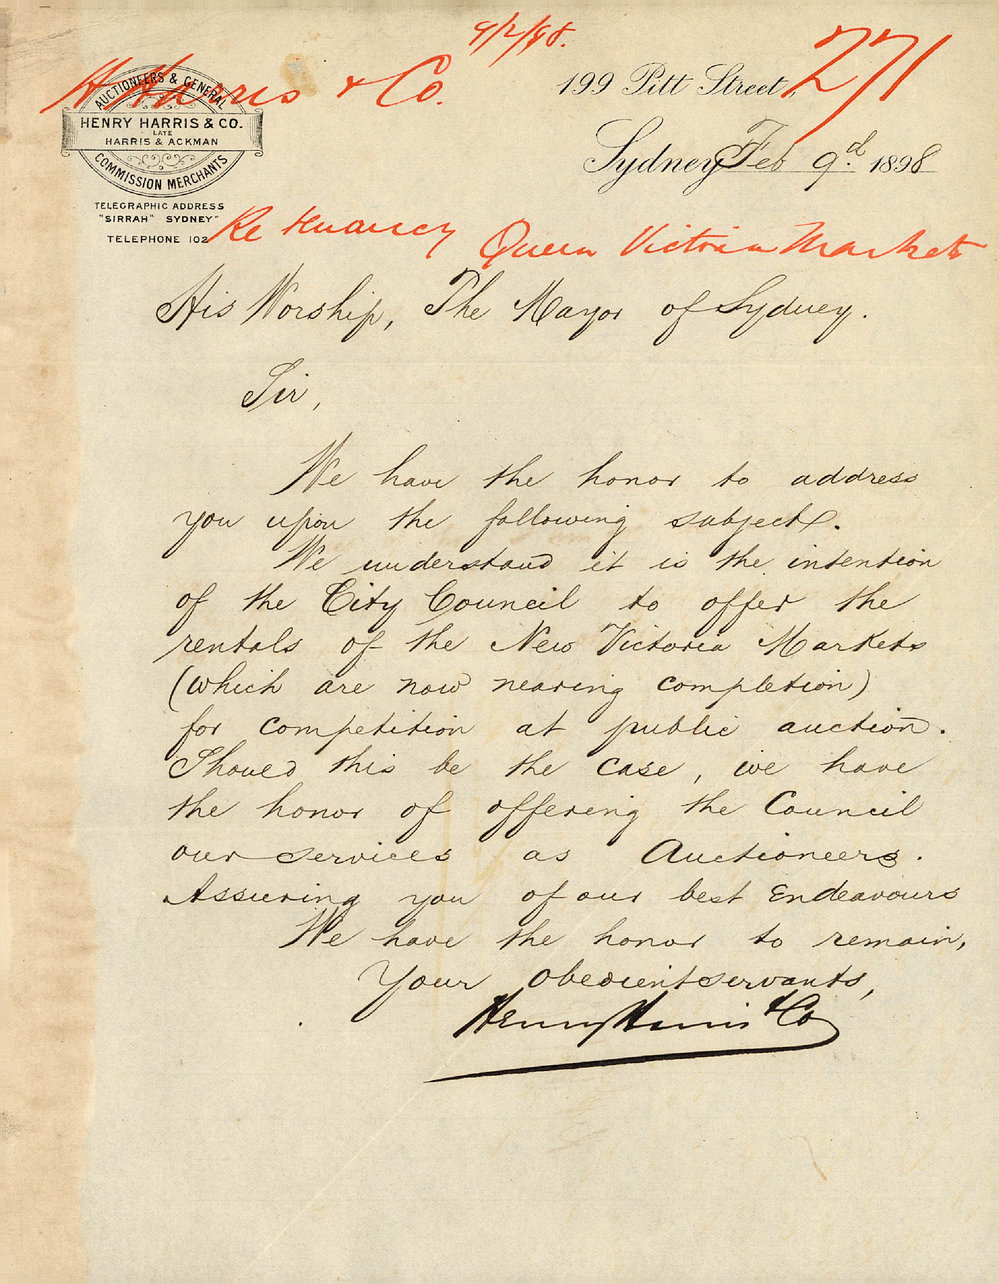 9/2/98.
H Harris & Co.
271
AUCTIONEERS & GENERAL
HENRY HARRIS & CO.
LATE
HARRIS & ACKMAN
COMMISSION MERCHANTS
TELEGRAPHIC ADDRESS
"SIRRAH" SYDNEY"
TELEPHONE 102
199 Pitt Street,
Sydney Feb 9d. 1898
Re tenancy Queen Victoria Markets
His Worship, The Mayor of Sydney.
Sir,
We have the honor to address
you upon the following subject.
We understand it is the intention
of the City Council to offer the
rentals of the New Victoria Markets
(which are now nearing completion)
for competition at public auction.
Should this be the case, we have
the honor of offering the Council
our services as Auctioneers.
Assuring you of our best Endeavours
We have the honor to remain,
Your obedient servants,
Henry Harris & Co